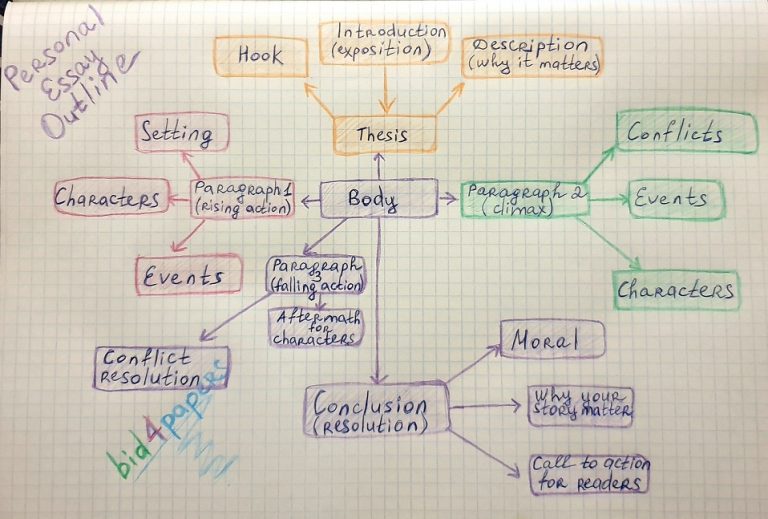 Personal
Essay
Outline
Hook
Introduction
(exposition)
Description
(why it matters)
Thesis
Setting
Characters
Paragraph 1
(rising action)
Events
Body
Paragraph 2
(climax)
Conflicts
Events
Characters
Paragraph
3
(falling action)
Aftermath
for
characters
Conflict
resolution
bid4papers
Conclusion
(resolution)
Moral
Why your
story matter
Call to action
for readers